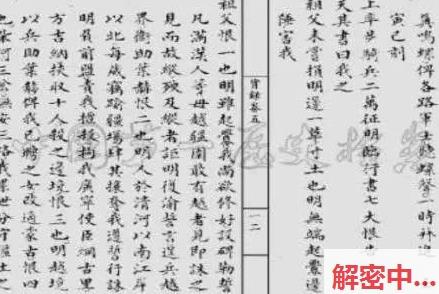 鳴螺俾各路軍士聽螺聲一時並進
寅巳刻
上率步騎兵二萬征明臨行書七大恨告
天其書曰我之
祖父未嘗損明邊一草寸土也明無端起釁邊
陲害我
實錄卷五
一二
祖父恨一也明雖起釁我尚欲修好設碑勒誓
凡滿漢人等毋越疆圉敢有越者見即誅之
見而故縱殃及縱者詎明復渝誓言逞兵越
界衛助葉赫恨二也明人於清河以南江岸
以北每歲竊踰疆場肆其攘奪我遵誓行誅
明負前盟責我擅殺拘我廣寧使臣綱古里
方吉納挾取十人殺之邊境恨三也明越境
以兵助葉赫俾我已聘之女改適蒙古恨四
也柴河三岔撫安三路我累世分守疆土之
中国第一历史档案
解密中...